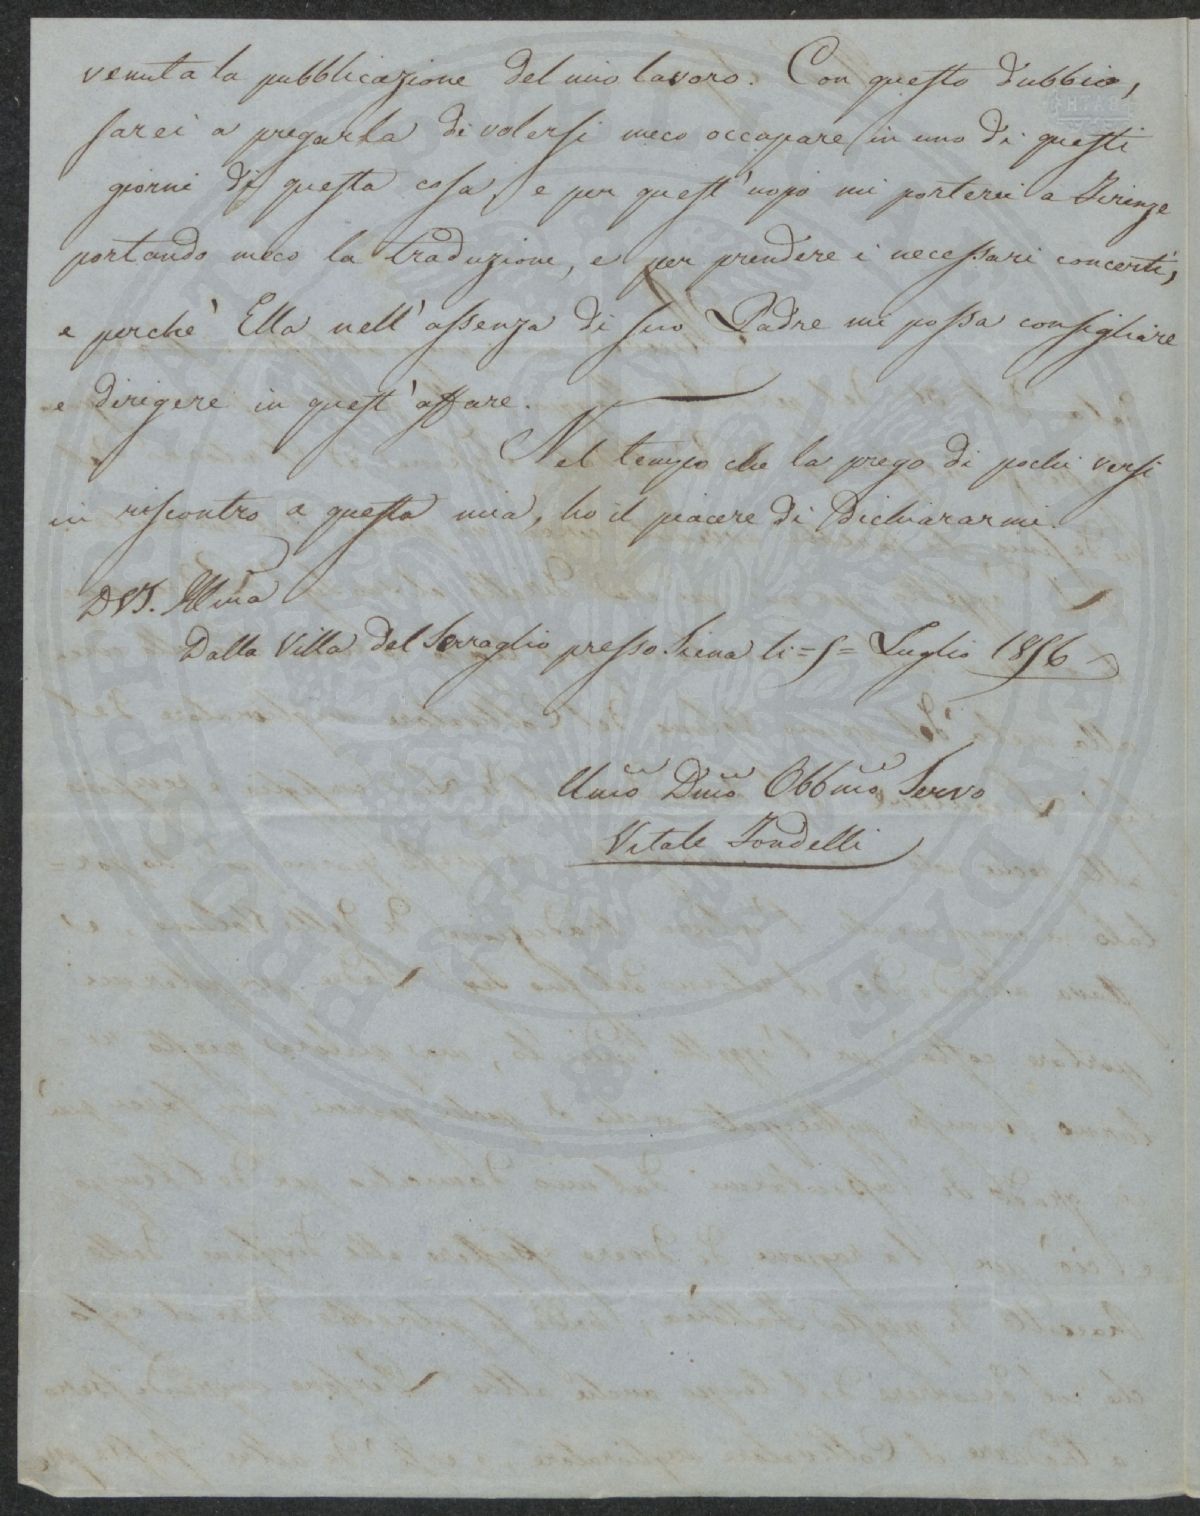 venuta la pubblicazione del mio lavoro. Con questo dubbio,
sarei a pregarla di volersi meco occupare in uno di questi
giorni di questa cosa, e per quest'uopo mi porterei a Firenze
portando meco la traduzione, e per prendere i necessari concerti,
e perchè Ella nell'assenza di suo Padre mi possa consigliare
e dirigere in quest'affare.
Nel tempo che la prego di pochi versi
in riscontro a questa mia, ho il piacere di dichiararmi.
D V S. Illma
Dalla Villa del Serraglio presso Siena li = 5 = Luglio 1856
Umo Dmo Obbmo Servo
Vitale Fondelli